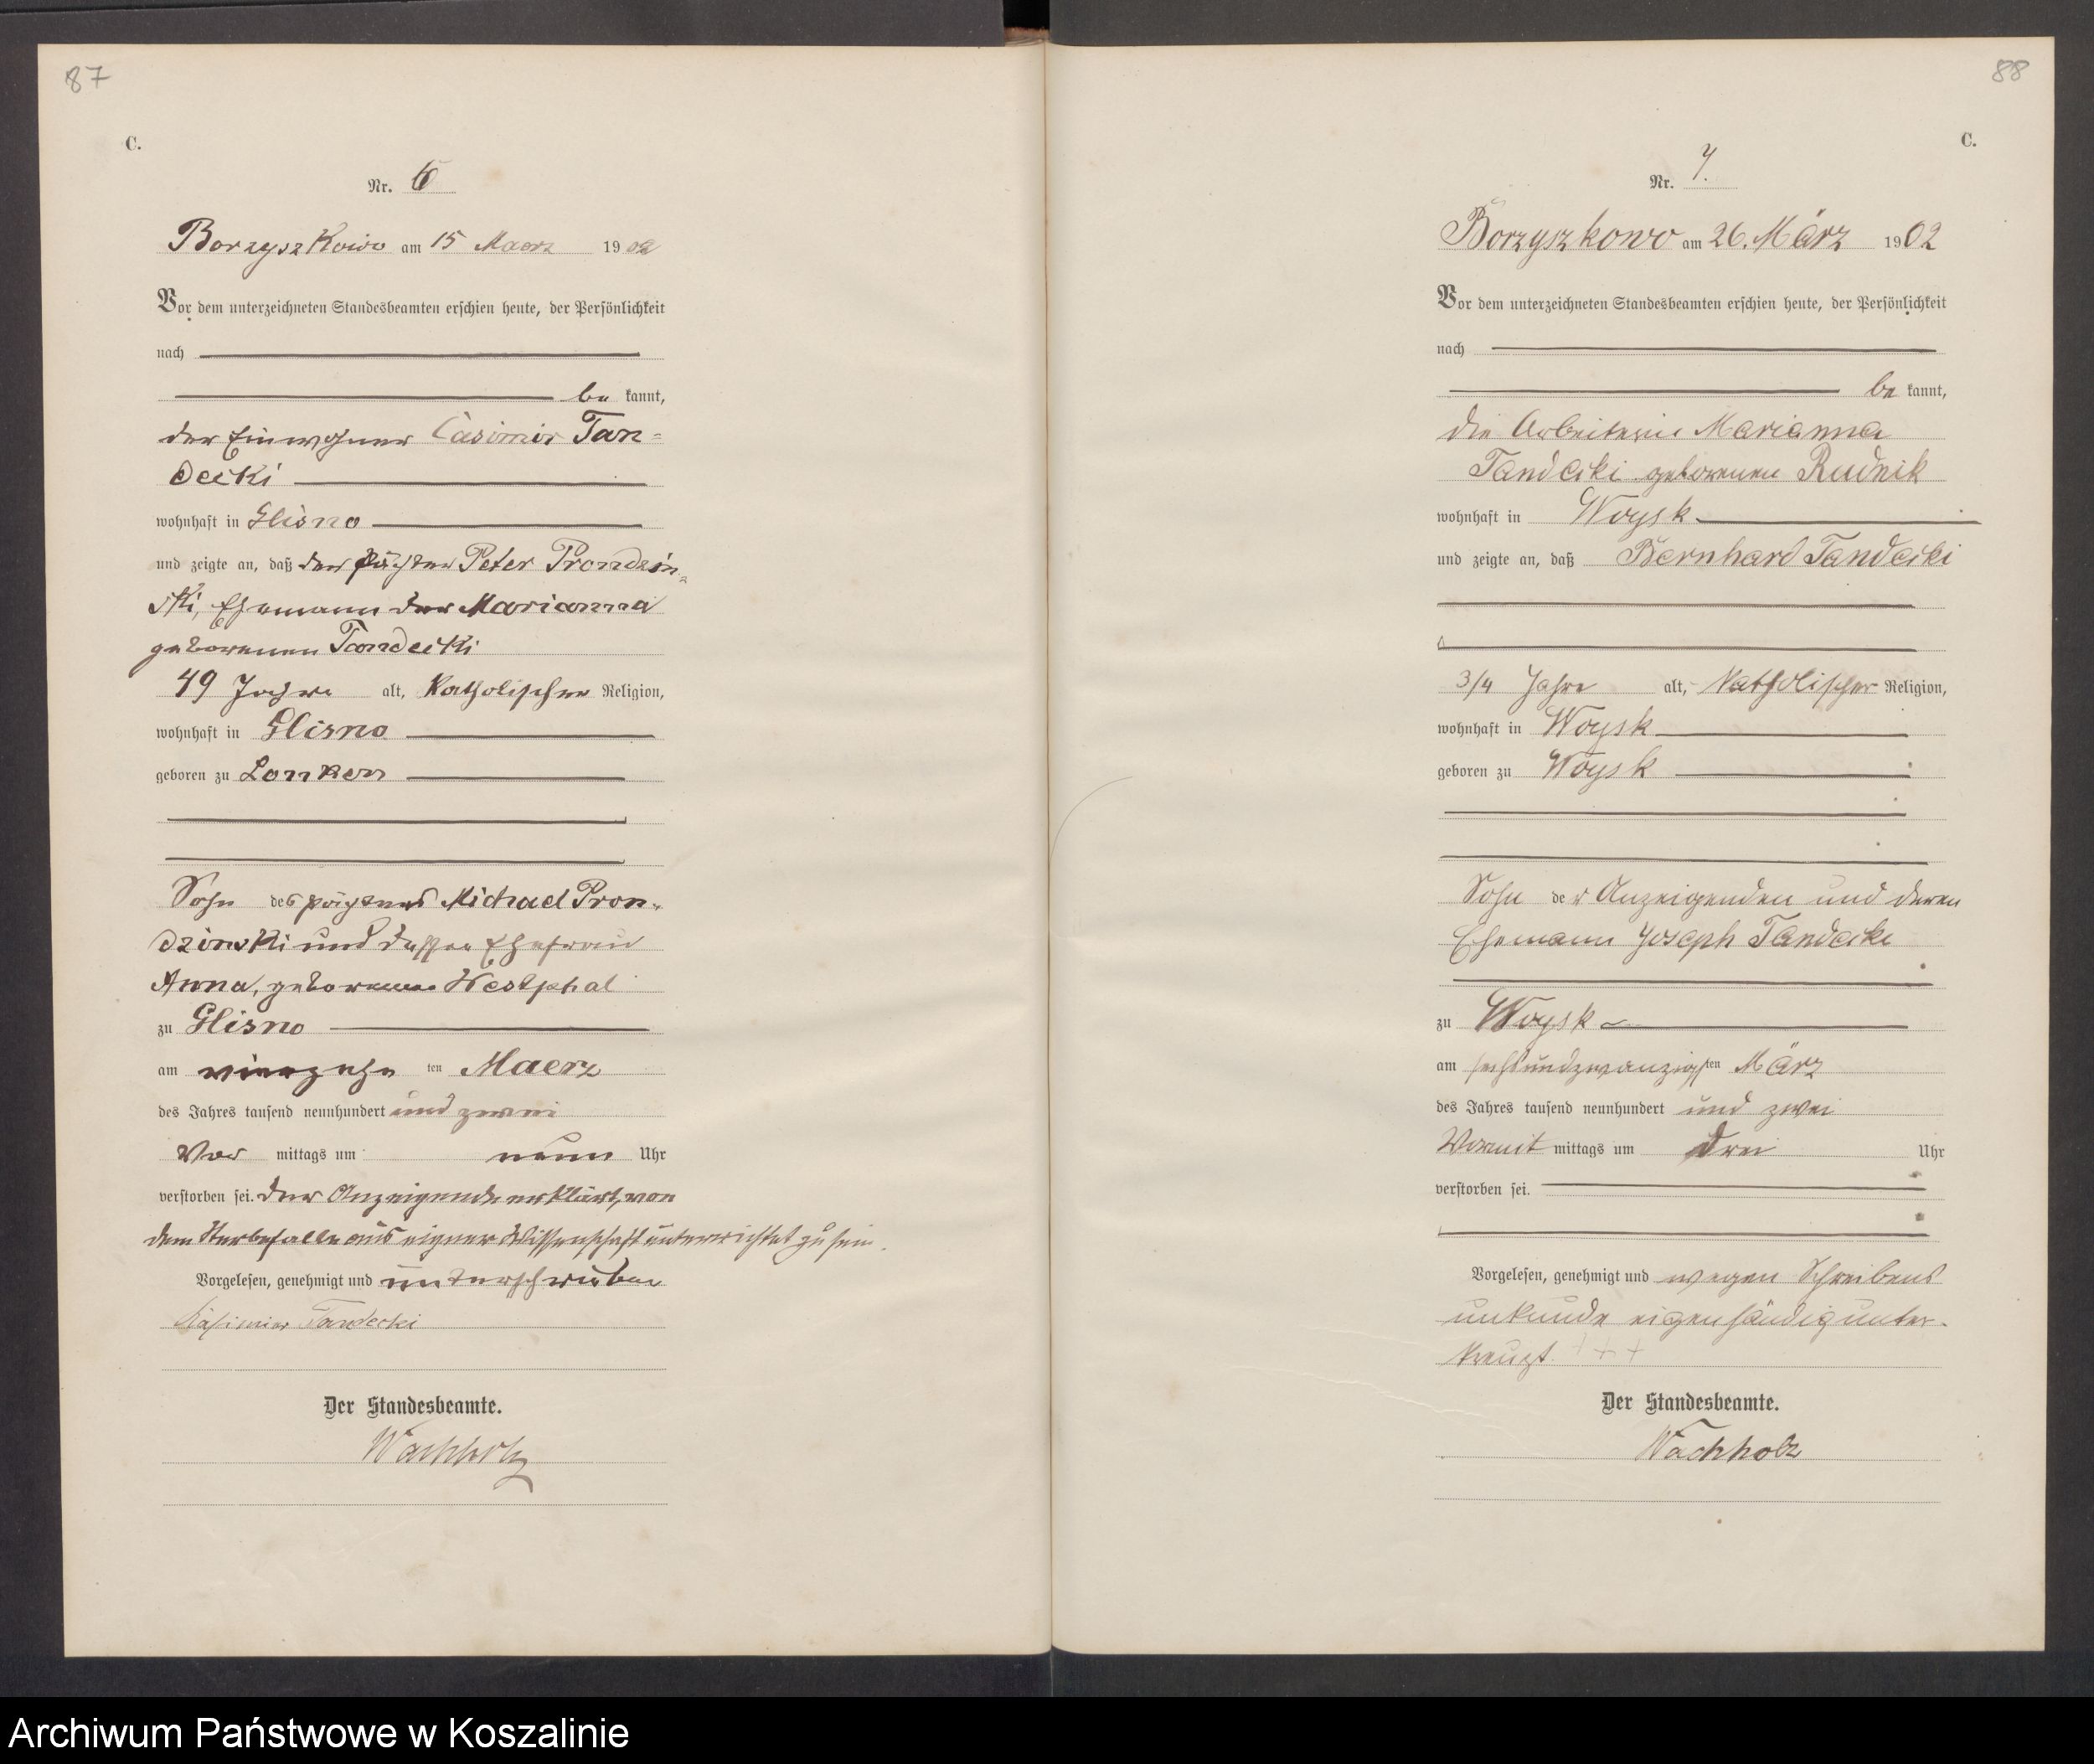 87
C.
Nr. 6
Borzyszkowo am 15 Maerz 1902
Vor dem unterzeichneten Standesbeamten erschien heute, der Persönlichkeit
nach
be kannt,
der Einwohner Casimir Tan=
decki
wohnhaft in Glisno
und zeigte an, daß der Pächter Peter Prondzin-
ski, Ehemann der Marianna
geborenen Tandecki
49 Jahre alt, Katholischer Religion,
wohnhaft in Glisno
geboren zu Lonken
Sohn des Pächters Michael Pron-
dzinski und dessen Ehefrau
Anna, geborene Westphal
zu Glisno
am vierzehn ten Maerz
des Jahres tausend neunhundert und zwei
Vor mittags um neun Uhr
verstorben sei. Der Anzeigende erklärt, von
dem Sterbefalle aus eigner Wissenschaft unterrichtet zu sein.
Vorgelesen, genehmigt und unterschrieben
Kasimier Tandecki
Der Standesbeamte.
Wachholz
88
C.
Nr. 7.
Borzyszkowo am 26. März 1902
Vor dem unterzeichneten Standesbeamten erschien heute, der Persönlichkeit
nach
be kannt,
die Arbeiterin Marianna
Tandecki geborenen Rudnik
wohnhaft in Woysk
und zeigte an, daß Bernhard Tandecki
3/4 Jahre alt, Katholischer Religion,
wohnhaft in Woysk
geboren zu Woysk
Sohn der Anzeigenden und deren
Ehemann Joseph Tandecki
zu Woysk
am sechsundzwanzigsten März
des Jahres tausend neunhundert und zwei
Vormit mittags um drei Uhr
verstorben sei.
Vorgelesen, genehmigt und wegen Schreibens
unkunde eigenhändig unter-
kreuzt. + + +
Der Standesbeamte.
Wachholz
Archiwum Państwowe w Koszalinie